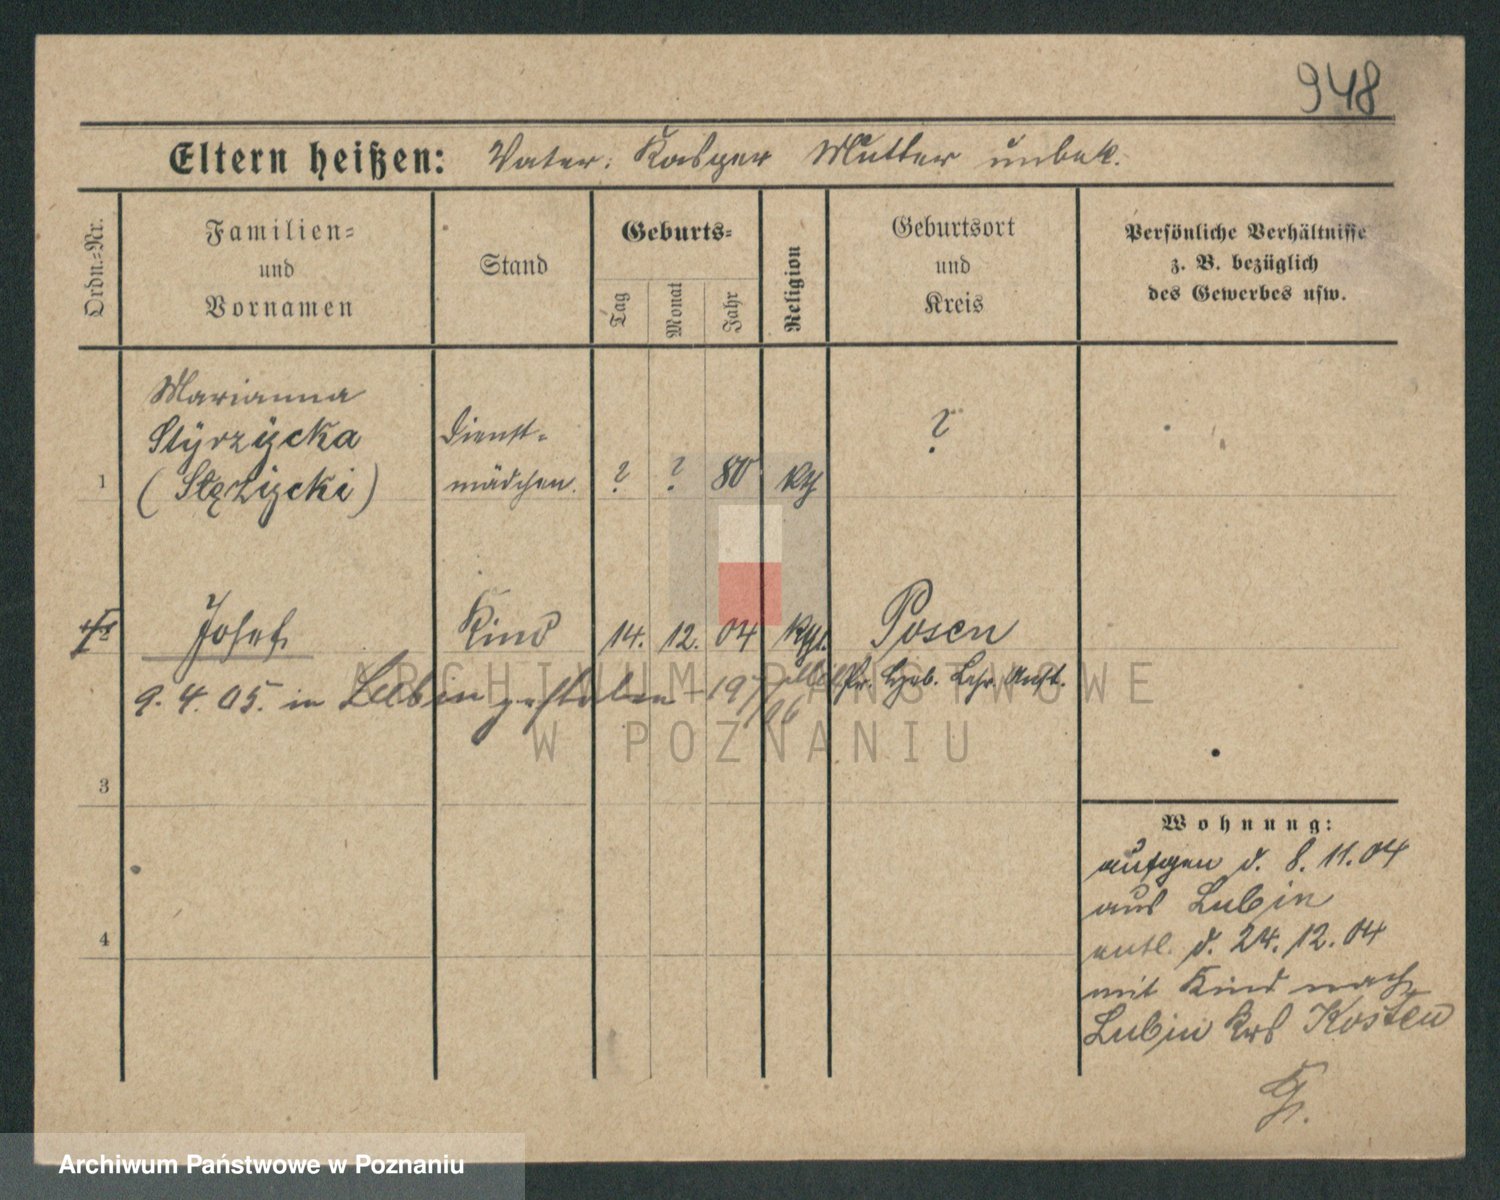 948
Eltern heißen: Vater: Kasper Mutter unbek.
Ordn.-Nr.
Familien-
und
Vornamen
Stand
Geburts-
Tag
Monat
Jahr
Religion
Geburtsort
und
Kreis
Persönliche Verhältnisse
z. B. bezüglich
des Gewerbes usw.
Marianna
Styrzycka
(Stężycki)
1
Dienst-
mädchen.
? ? 80 kth
?
Josef
Kind
14. 12. 04 kth.
Posen
Pr. Heb. Lehr. Anst.
9. 4. 05. in Lubin gestorben - 197/06
3
4
Wohnung:
aufgen d. 8. 11. 04
aus Lubin
entl. d. 24. 12. 04
mit Kind nach
Lubin Krs Kosten
ARCHIWUM PAŃSTWOWE
W POZNANIU
Archiwum Państwowe w Poznaniu